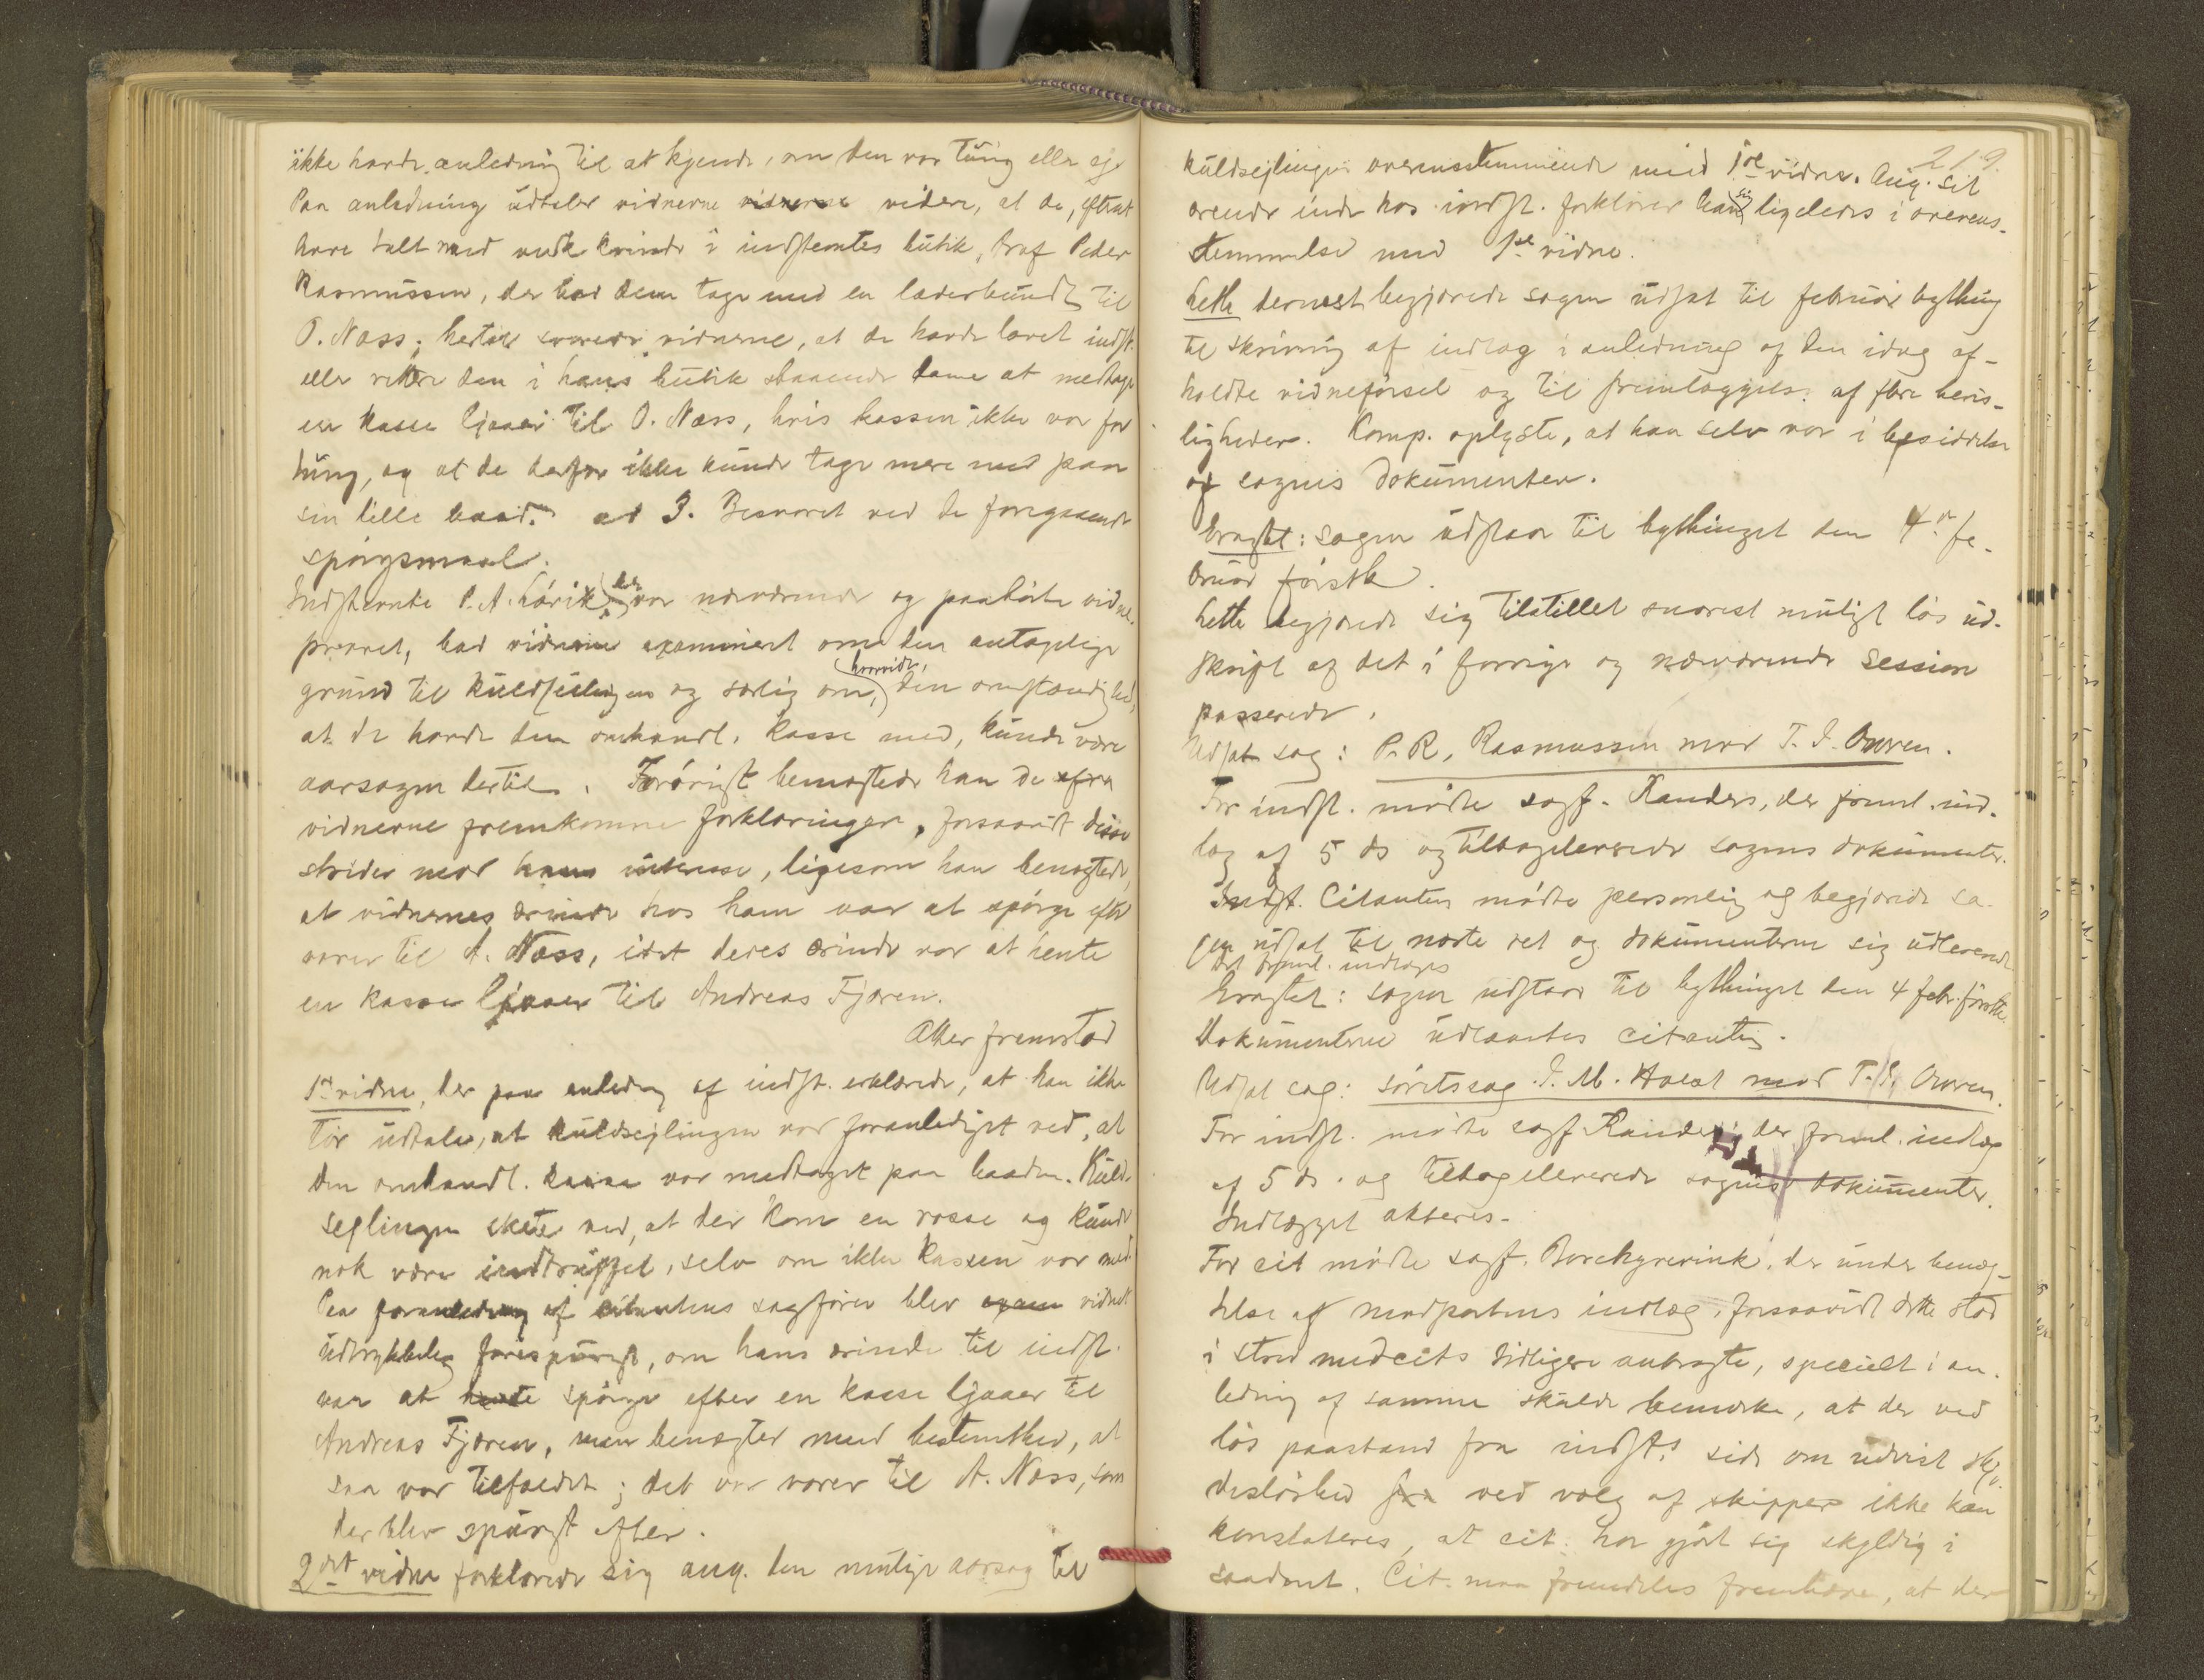 ikke havde anledning til at kjende, om den var tung eller ej.
Paa anledning udtaler vidnerne vidnerne videre, at de, efterat
have talt med kvinde i indstemtes butik, traf Peder
Rasmussen, der bad dem tage med en læderbundt til
O. Næss; hertil svarede vidnerne, at de havde lovet indst.
eller rettere den i hans butik staaende dame at medtage
en kasse ljaaer til O. Næss, hvis kassen ikke var for
tung, og at de derfor ikke kunde tage mere med paa
sin lille baad. ad 3. Besvaret ved de foregaaende
spørgsmaal.
Indstemte P. A. der var nærværende og paahørte vidne-
prøvet, bad vidnerne examineret om den antagelige
grund til kuldseilingen og særlig om, hvorvidt, den omstændighed,
at de havde den omhandl. kasse med, kunde være
aarsagen dertil. Forøvrigt benægtede han de af
vidnerne fremkomne forklaringer, forsaavidt disse
strider mod hans interesse, ligesom han benægtede,
at vidnernes ærinde hos ham var at spørge efter
varer til A. Næss, idet deres ærinde var at hente
en kasse ljaaer til Andreas Fjæren.
Atter fremstod
1ste vidne, der paa anledng af indst. erklærede, at han ikke
tør udtale, at kuldseglingen var foranlediget ved, at
den omhandl. kasse var medtaget paa baaden. Kuld-
seglingen skete ved, at der kom en rosse og kunde
nok være indtruffet, selv om ikke kassen var med.
Paa foranledning af citantens sagfører blev exam vidnet
udtrykkelig forespurgt, om hans ærinde til indst.
var at hente spørge efter en kasse ljaaer til
Andreas Fjæren, men benægter med bestemthed, at
saa var tilfældet; det var varer til A. Næss, som
der blev spurgt efter.
2det vidne forklarede sig ang. den mulige aarsag til
219.
kuldsejlingen overensstemmende med 1ste vidne. Ang. sit
ærende inde hos indst. forklarer han sig ligeledes i overens-
stemmelse med 1ste vidne.
dernest begjærede sagen udsat til februar bything
til skrivning af indlæg i anledning af den idag af-
holdte vidneførsel og til fremlæggelse af flere bevis-
ligheder. Komp. oplyste, at han selv var i besiddelse
af sagens dokumenter.
Eragtet: sagen udstaar til bythinget den 4de fe-
bruar førstk.
begjærede sig tilstillet snarest muligt løs ud-
skrift af det i forrige og nærværende session
passerede.
Udsat sag: P. R. Rasmussen mod T. I. Owren.
For indst. mødte sagf. Randers, der freml. ind-
læg af 5 ds og tilbageleverede sagens dokumenter.
Indst. Citanten mødte personlig og begjærede sa-
gen udsat til næste ret og dokumenterne sig udleveret
Det freml. indlæges
Eragtet: sagen udstaar til bythinget den 4 febr. førstk.
Dokumenterne udlaantes citanten.
Udsat sag: søretssag I. M. Holst mod T. I. Owren.
For indst. mødte sagf. Randers, der freml. indlæg
af 5 ds. og tilbageleverede sagens dokumenter.
Indlægget akteres.
For cit mødte sagf. Borchgrevink, der under benæg-
telse af modpartens indlæg, forsaavidt dette stod
i strid med cits tidligere anbragte, specielt i an-
ledng af samme skulde bemærke, at der ved
løs paastand fra indst.s side om udvist skjø-
desløshed fra ved valg af skipper ikke kan
konstateres, at cit. har gjørt sig skyldig i
saadant. Cit. maa fremdeles fremhæve, at der